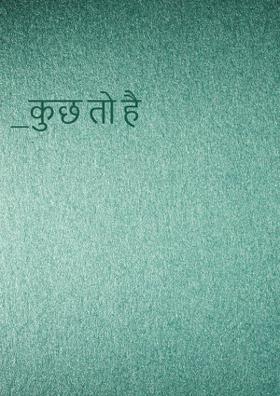 _कुछ तो है